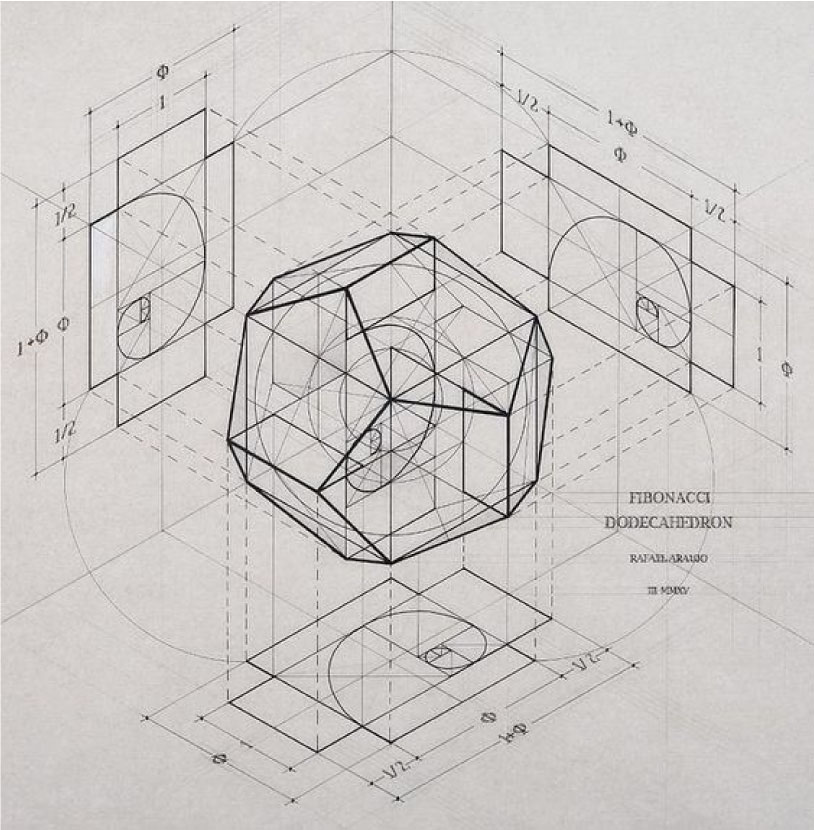 Φ
1
1/2
1+Φ
Φ
1/2
1/2
1+Φ
Φ
1/2
1
Φ
FIBONACCI
DODECAHEDRON
RAFAEL ARAUJO
III MMXV
1/2
Φ
1+Φ
1/2
1
Φ